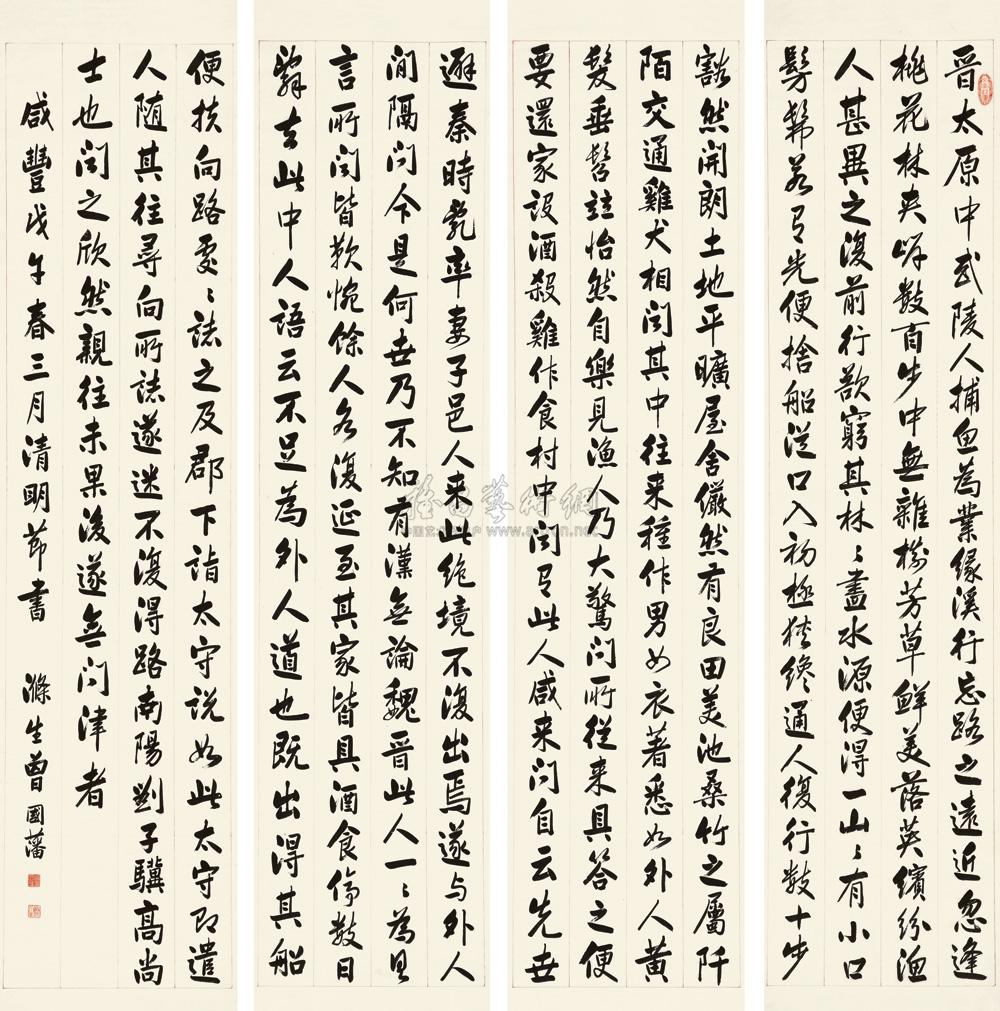 晉太原中武陵人捕魚為業緣溪行忘路之遠近忽逢
桃花林夾岸數百步中無雜樹芳草鮮美落英繽紛漁
人甚異之復前行欲窮其林〻盡水源便得一山〻有小口
髣髴若有光便捨船從口入初極狹纔通人復行數十步
豁然開朗土地平曠屋舍儼然有良田美池桑竹之屬阡
陌交通雞犬相聞其中往來種作男女衣著悉如外人黃
髮垂髫竝怡然自樂見漁人乃大驚問所從來具答之便
要還家設酒殺雞作食村中聞有此人咸來問自云先世
避秦時亂率妻子邑人来此絕境不復出焉遂与外人
間隔問今是何世乃不知有漢無論魏晉此人一〻為具
言所聞皆歎惋餘人各復延至其家皆具酒食停數日
辭去此中人語云不足為外人道也既出得其船
便扶向路處〻誌之及郡下詣太守說如此太守即遣
人隨其往尋向所誌遂迷不復得路南陽劉子驥高尚
士也聞之欣然親往未果後遂無問津者
咸豐戊午春三月清明節書 滌生曾國藩
雅昌藝術網
www.artron.net